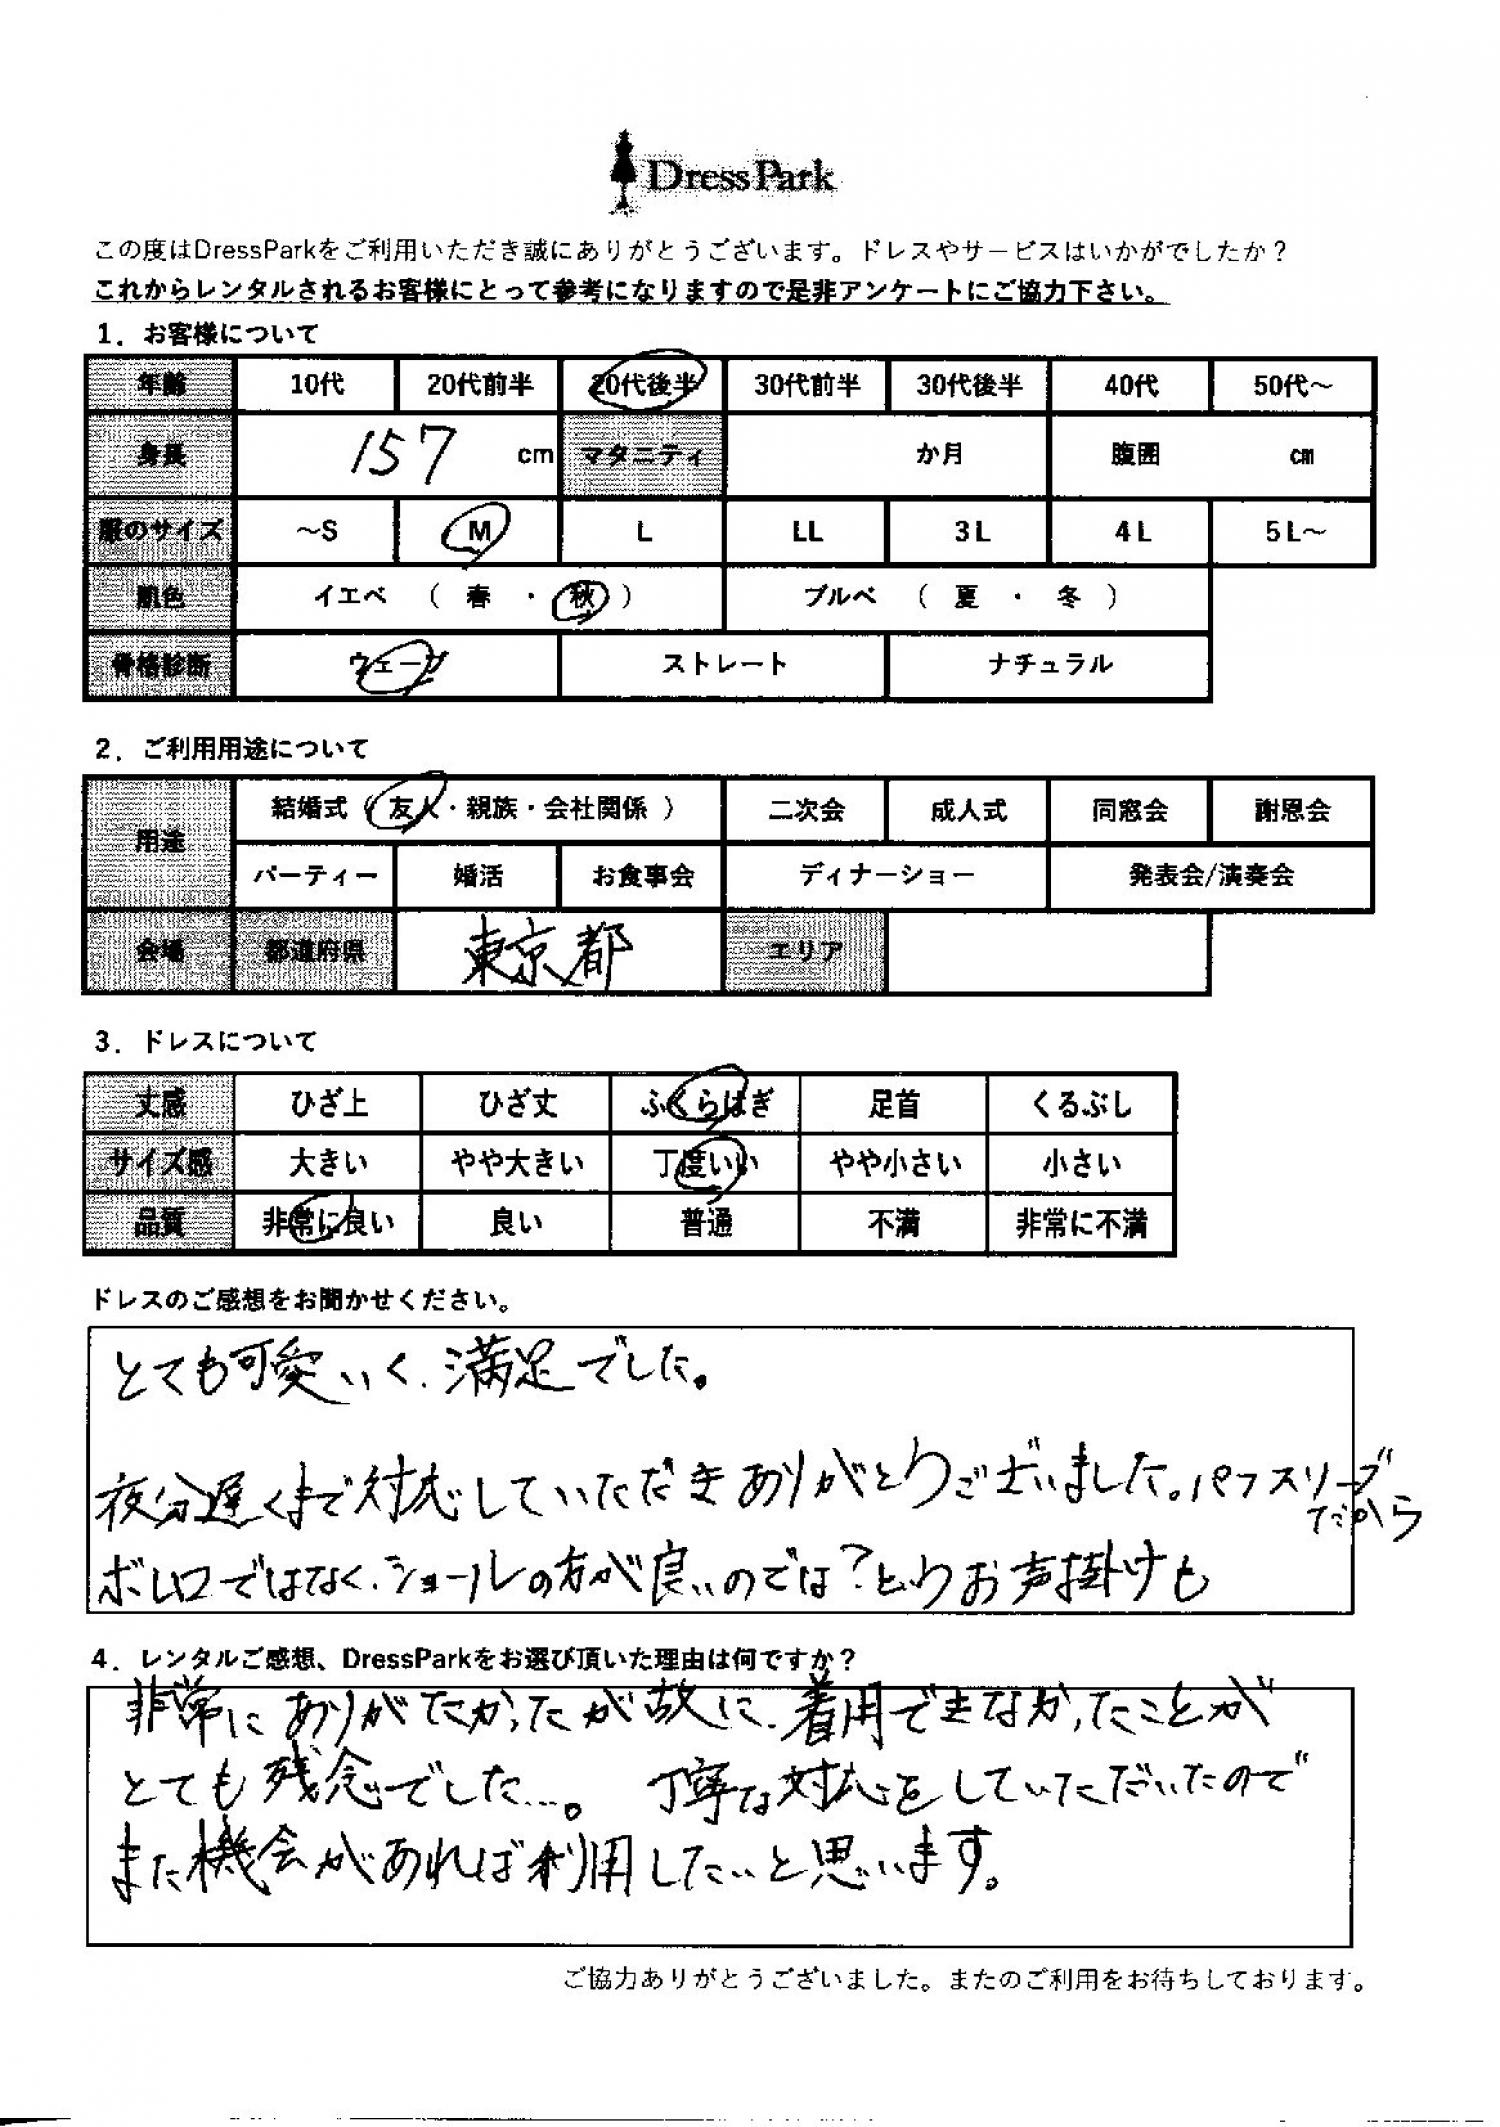 DressPark
この度はDressParkをご利用いただき誠にありがとうございます。ドレスやサービスはいかがでしたか？
これからレンタルされるお客様にとって参考になりますので是非アンケートにご協力下さい。
1．お客様について
年齢 10代 20代前半 20代後半 30代前半 30代後半 40代 50代～
身長 157 cm マタニティ か月 腹囲 cm
服のサイズ ～S M L LL 3L 4L 5L～
肌色 イエベ （ 春 ・ 秋 ） ブルベ （ 夏 ・ 冬 ）
骨格診断 ウェーブ ストレート ナチュラル
2．ご利用用途について
用途 結婚式（ 友人・親族・会社関係 ） 二次会 成人式 同窓会 謝恩会
パーティー 婚活 お食事会 ディナーショー 発表会/演奏会
会場 都道府県 東京都 エリア
3．ドレスについて
丈感 ひざ上 ひざ丈 ふくらはぎ 足首 くるぶし
サイズ感 大きい やや大きい 丁度いい やや小さい 小さい
品質 非常に良い 良い 普通 不満 非常に不満
ドレスのご感想をお聞かせください。
とても可愛いく、満足でした。
夜分遅くまで対応していただきありがとうございました。パフスリーブ
だから
ボレロではなく、ショールの方が良いのでは？というお声掛けも
4．レンタルご感想、DressParkをお選び頂いた理由は何ですか？
非常にありがたかったが故に、着用できなかったことが
とても残念でした…。 丁寧な対応をしていただいたので
また機会があれば利用したいと思います。
ご協力ありがとうございました。またのご利用をお待ちしております。